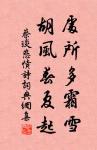 處所多霜雪
胡風春夏起
蔡琰悲憤詩詞典網集